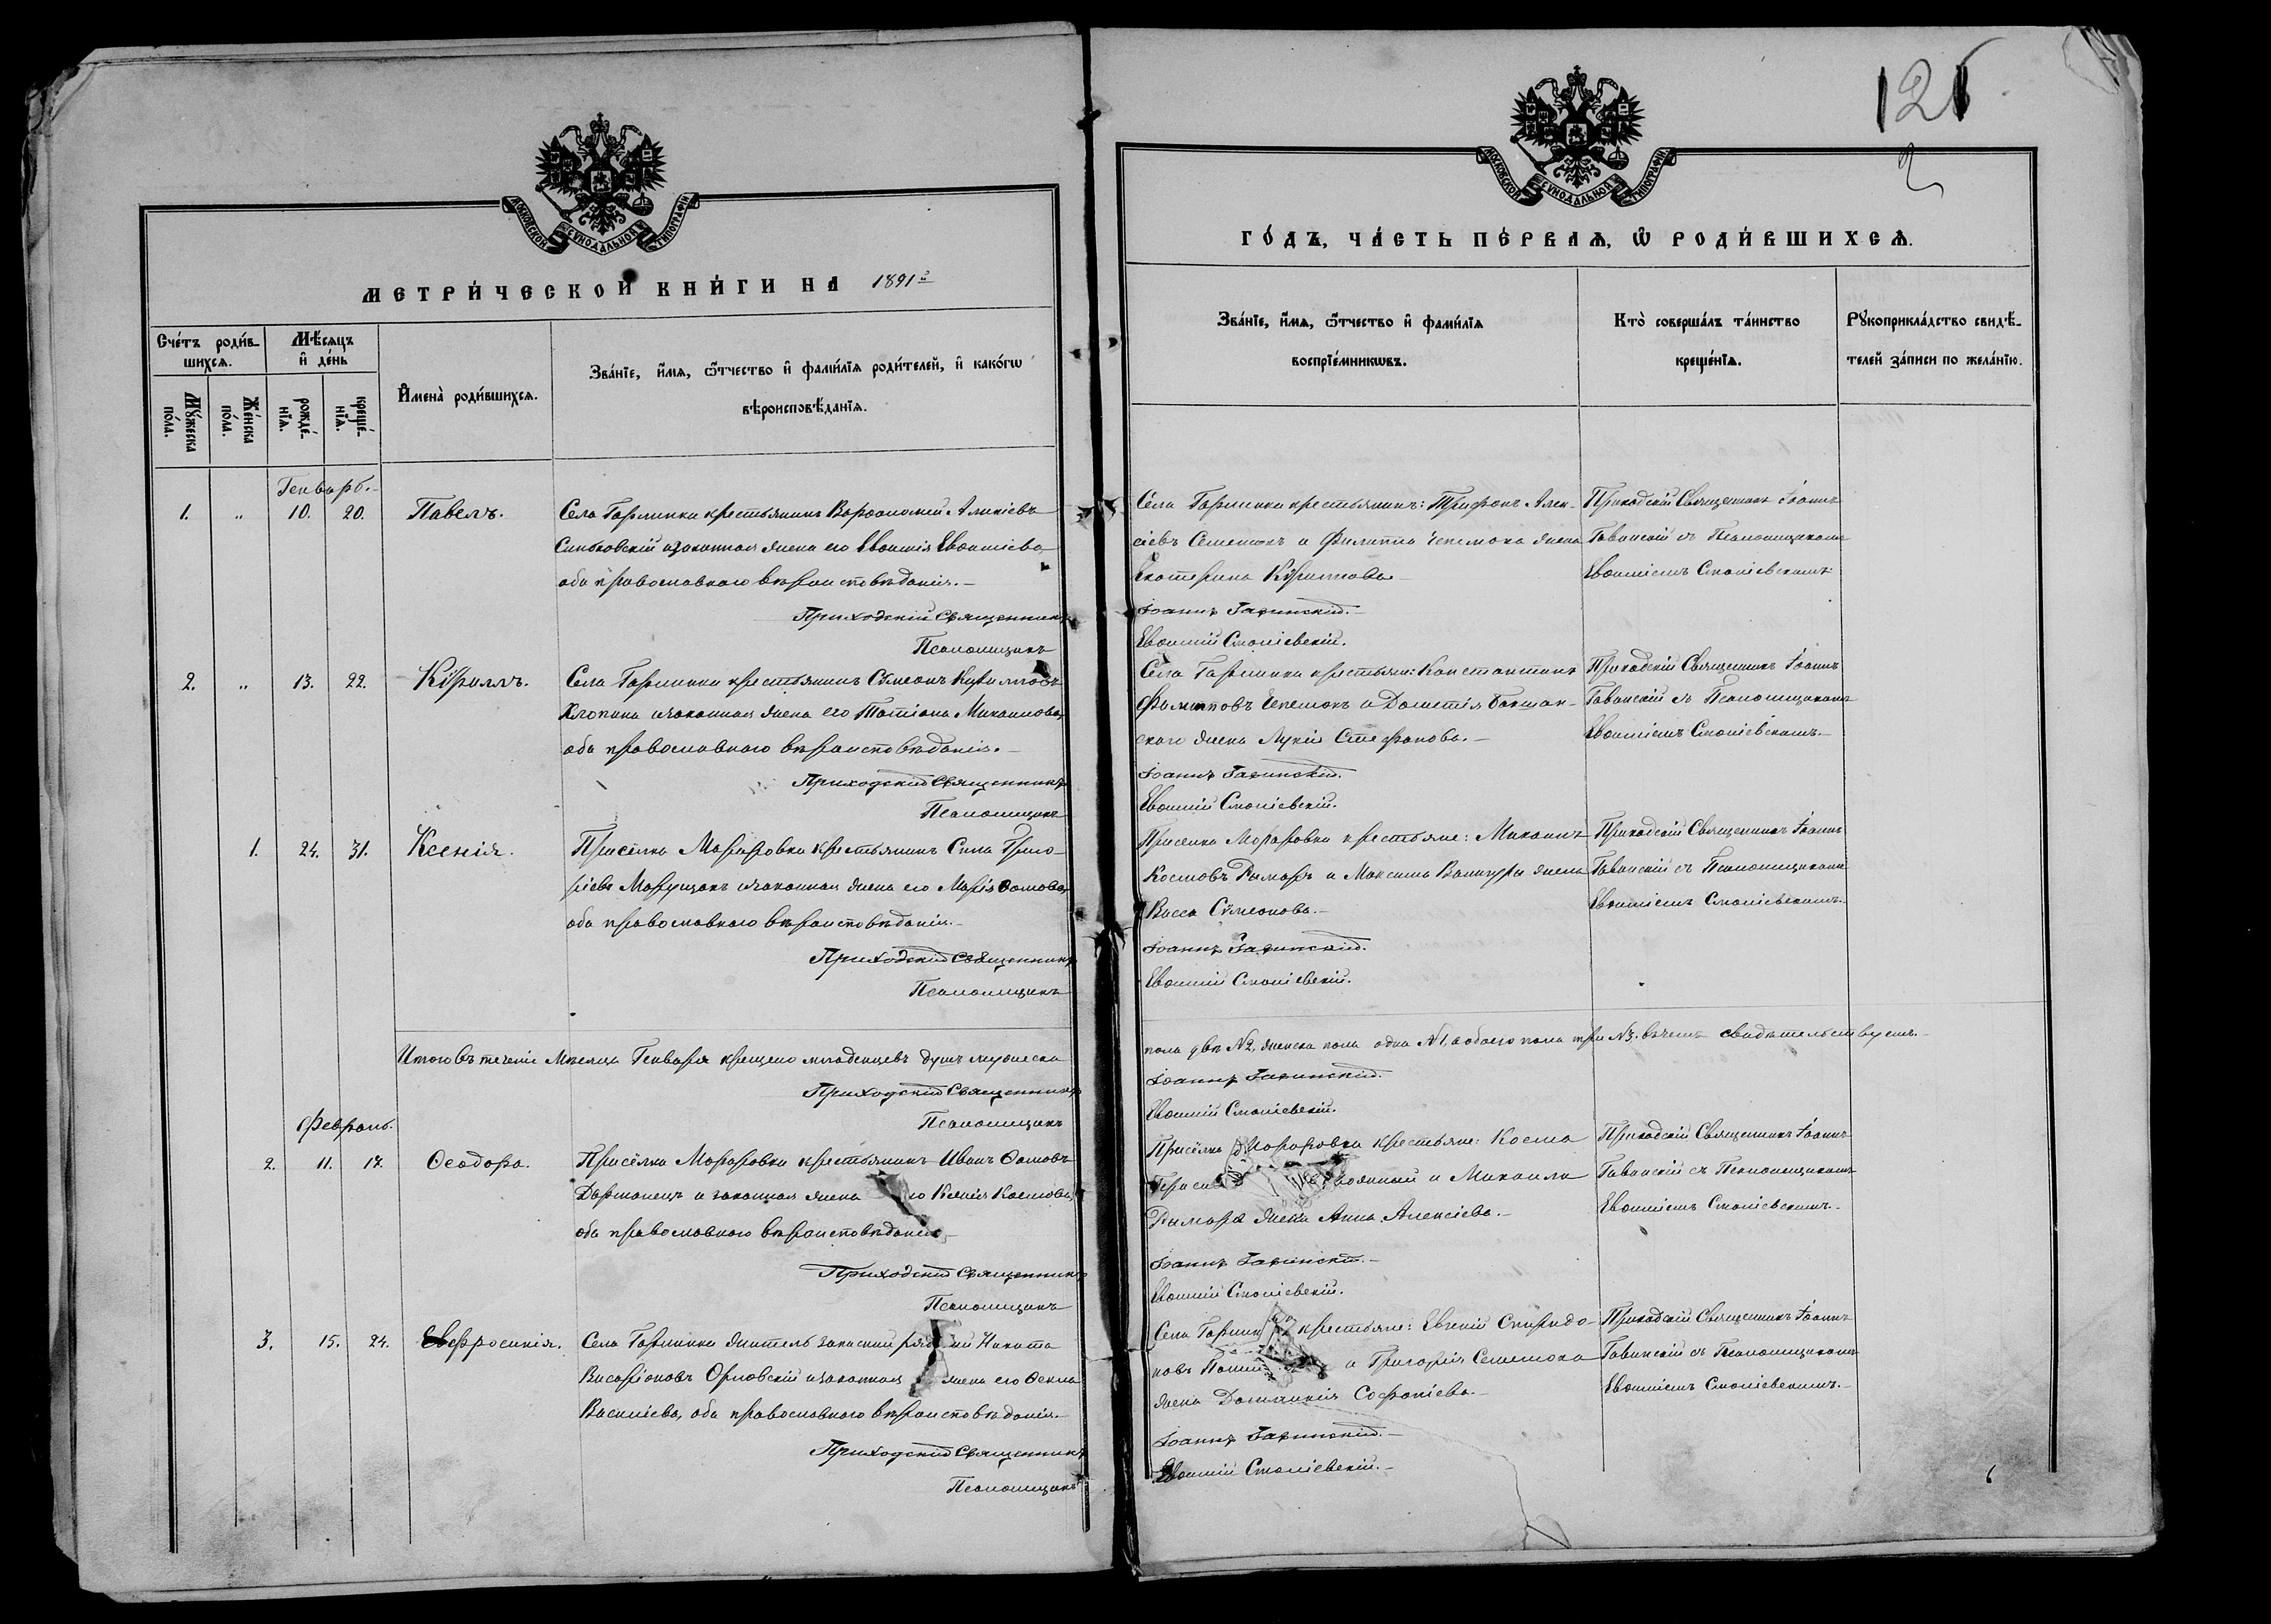 126
2
МОСКОВСКОЙ СУНОДАЛЬНОЙ ТИПОГРАФІИ
МЕТРИ́ЧЕСКОЙ КНИ́ГИ НА 1891й
Сче́тъ роди́в-
шихсѧ.
Мѣ́сѧцъ
и҆ де́нь
Мꙋ́жеска
по́ла.
Же́нска
по́ла.
рожде́-
нїѧ.
креще́-
нїѧ.
И҆мена̀ роди́вшихсѧ.
Зва́нїе, и҆́мѧ, ѻ҆́тчество и҆ фами́лїѧ роди́телей, и҆ како́гѡ
вѣроисповѣ́данїѧ.
Генварь.
1. " 10. 20. Павелъ.
Села Гарминки крестьянинъ Варѳоломей Алексіевъ
Синьковскій и законная жена его Евѳимія Евѳиміева
оба православнаго вѣроисповѣданія.
Приходскій Священникъ
Псаломщикъ
2. " 13. 22. Кѵриллъ.
Села Гарминки крестьянинъ Сѵмеонъ Кириловъ
и законная жена его Татіана Михаилова,
оба православнаго вѣроисповѣданія.
Приходскій Священникъ
Псаломщикъ
1. 24. 31. Ксенія.
Присёлка Мараровки крестьянинъ Сила Григо-
ріевъ Марущакъ и законная жена его Марія Ѳомова,
оба православнаго вѣроисповѣданія.
Приходскій Священникъ
Псаломщикъ
Итого въ теченіе Мѣсяца Генваря крещено младенцевъ душъ мужеска
Приходскій Священникъ
Псаломщикъ
Февраль.
2. 11. 17. Ѳеодора.
Присёлка Мараровки крестьянинъ Иванъ Ѳомовъ
и законная жена его Ксенія Космова,
оба православнаго вѣроисповѣданія
Приходскій Священникъ
Псаломщикъ
3. 15. 24. Евфросинія.
Села Гарминки житель запасный рядовый Никита
Висаріоновъ Орловскій и законная жена его Ѳекла
Василіева, оба православнаго вѣроисповѣданія.
Приходскій Священникъ
Псаломщикъ
МОСКОВСКОЙ СУНОДАЛЬНОЙ ТИПОГРАФІИ
ГО́ДЪ, ЧА́СТЬ ПЕ́РВАѦ, Ѡ҆ РОДИ́ВШИХСѦ.
Зва́нїе, и҆́мѧ, ѻ҆́тчество и҆ фами́лїѧ
воспрїе́мникѡвъ.
Кто̀ соверша́лъ та́инство
креще́нїѧ.
Рꙋкоприкла́дство свидѣ́-
телей за́писи по жела́нїю.
Села Гарминки крестьянинъ: Трифонъ Алек-
сіевъ Семенюкъ и Филиппа Чепелюка жена
Екатерина Кѵрилова
Іоаннъ Гавинскій.
Евѳимій Смолієвскій.
Приходскій Священникъ Іоаннъ
Гавинскій съ Псаломщикомъ
Евѳиміемъ Смоліевскимъ.
Села Гарминки крестьяне: Константинъ
Филиповъ Чепелюкъ и Дометія
жена Лукія Стефанова.
Іоаннъ Гавинскій.
Евѳимій Смоліевскій.
Приходскій Священникъ Іоаннъ
Гавинскій съ Псаломщикомъ
Евѳиміемъ Смоліевскимъ.
Присёлка Мараровки крестьяне: Михаилъ
Космовъ Рымаръ и Максима жена
Васса Сѵмеонова.
Іоаннъ Гавинскій.
Евѳимій Смоліевскій.
Приходскій Священникъ Іоаннъ
Гавинскій съ Псаломщикомъ
Евѳиміемъ Смоліевскимъ.
пола двѣ №2, женска пола одна №1, а обоего пола три №3. въ чемъ свидѣтельствуемъ.
Іоаннъ Гавинскій.
Евѳимій Смоліевскій.
Присёлка Мараровки крестьяне: Косма
и Михаила
Рымара жена Анна Алексіева.
Іоаннъ Гавинскій.
Евѳимій Смоліевскій.
Приходскій Священникъ Іоаннъ
Гавинскій съ Псаломщикомъ
Евѳиміемъ Смоліевскимъ.
Села Гарминки крестьяне: Евѳимій Спиридо-
новъ и Григорія Семенюка
жена Домникія Софоніева.
Іоаннъ Гавинскій.
Евѳимій Смоліевскій.
Приходскій Священникъ Іоаннъ
Гавинскій съ Псаломщикомъ
Евѳиміемъ Смоліевскимъ.